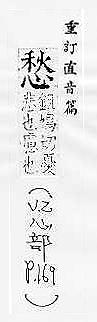 重訂直音篇
愁
鉏鳩切憂
悲也慮也
(V.2心部 P.169)